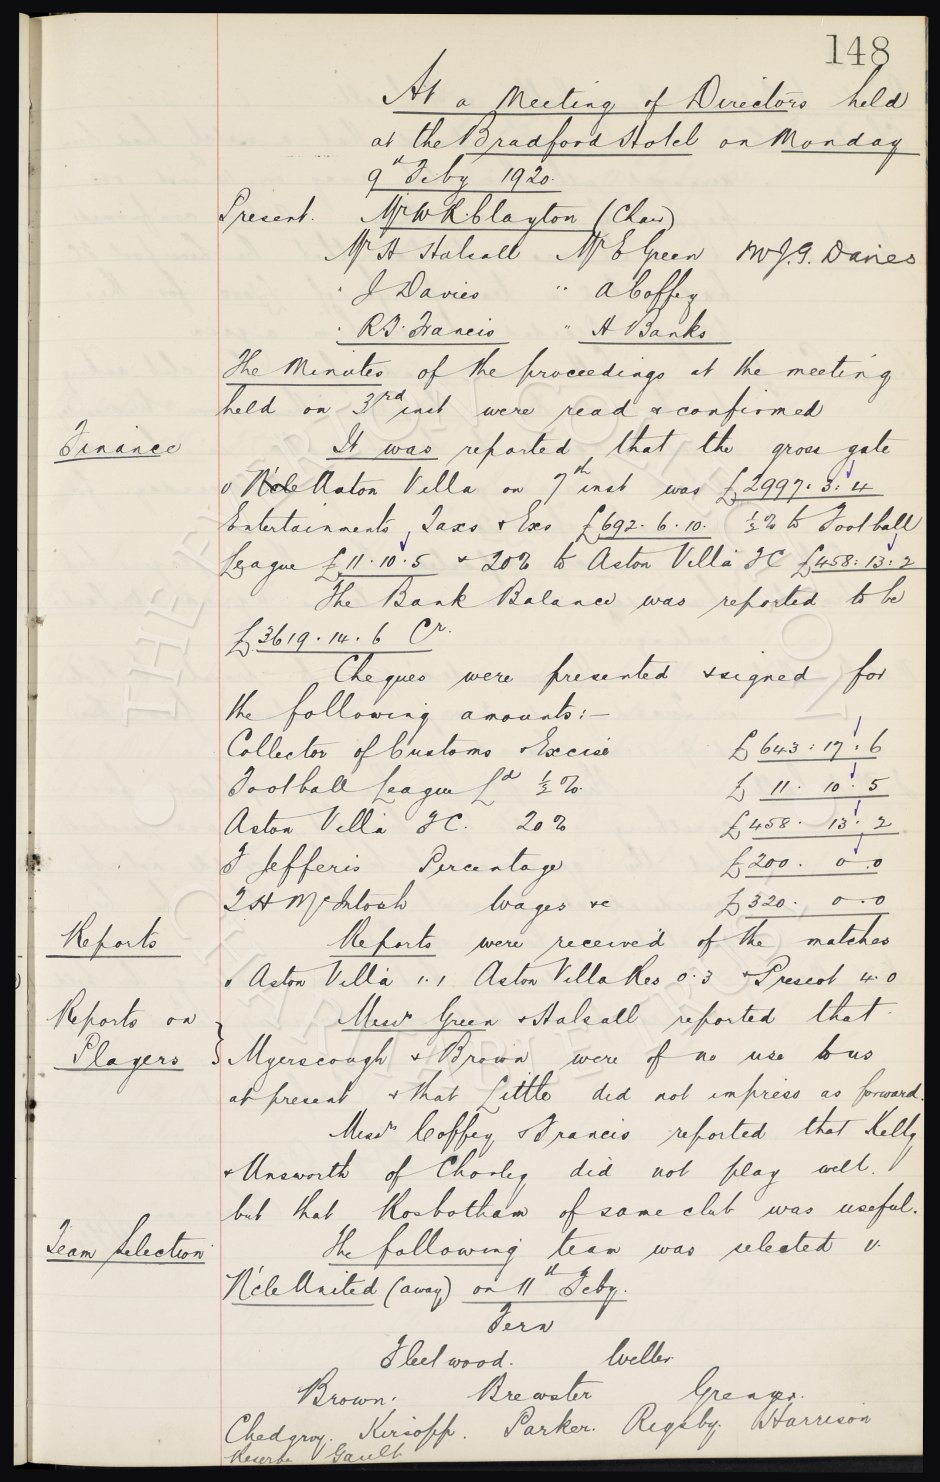 148
At a Meeting of Directors held
at the Bradford Hotel on Monday
9th Feby 1920.
Present. Mr W R Clayton (Chair)
Mr H Halsall Mr E Green Mr J.G. Davies
" J Davies " A Coffey
" R.T. Francis " H Banks
The Minutes of the proceedings at the meeting
held on 3rd inst were read & confirmed
Finance It was reported that the gross gate
v N'cle Aston Villa on 7th inst was £2997. 3. 4
Entertainments Taxs & Exs £692. 6. 10. ½% to Football
League £11. 10. 5 & 20% to Aston Villa FC £458: 13: 2
The Bank Balance was reported to be
£3619. 14. 6 Cr.
Cheques were presented & signed for
the following amounts:-
Collector of Customs & Excise £643: 17: 6
Football League Ld ½%. £ 11. 10. 5
Aston Villa FC. 20% £458. 13. 2
F Jefferis Percentage £200. 0. 0
T H McIntosh Wages &c £320. 0. 0
Reports Reports were received of the matches
v Aston Villa 1.1 Aston Villa Res 0.3 & Prescot 4.0
Reports on Players } Messrs Green & Halsall reported that
Myerscough & Brown were of no use to us
at present & that Little did not impress as forward.
Messrs Coffey & Francis reported that Kelly
& Unsworth of Chorley did not play well.
but that Rosbotham of same club was useful.
Team Selection The following team was selected v.
N'cle United (away) on 11th Feby.
Fern
Fleetwood. Weller
Brown. Brewster Grenyer.
Chedgzoy. Kirsopp. Parker. Rigsby. Harrison
Reserve Gault